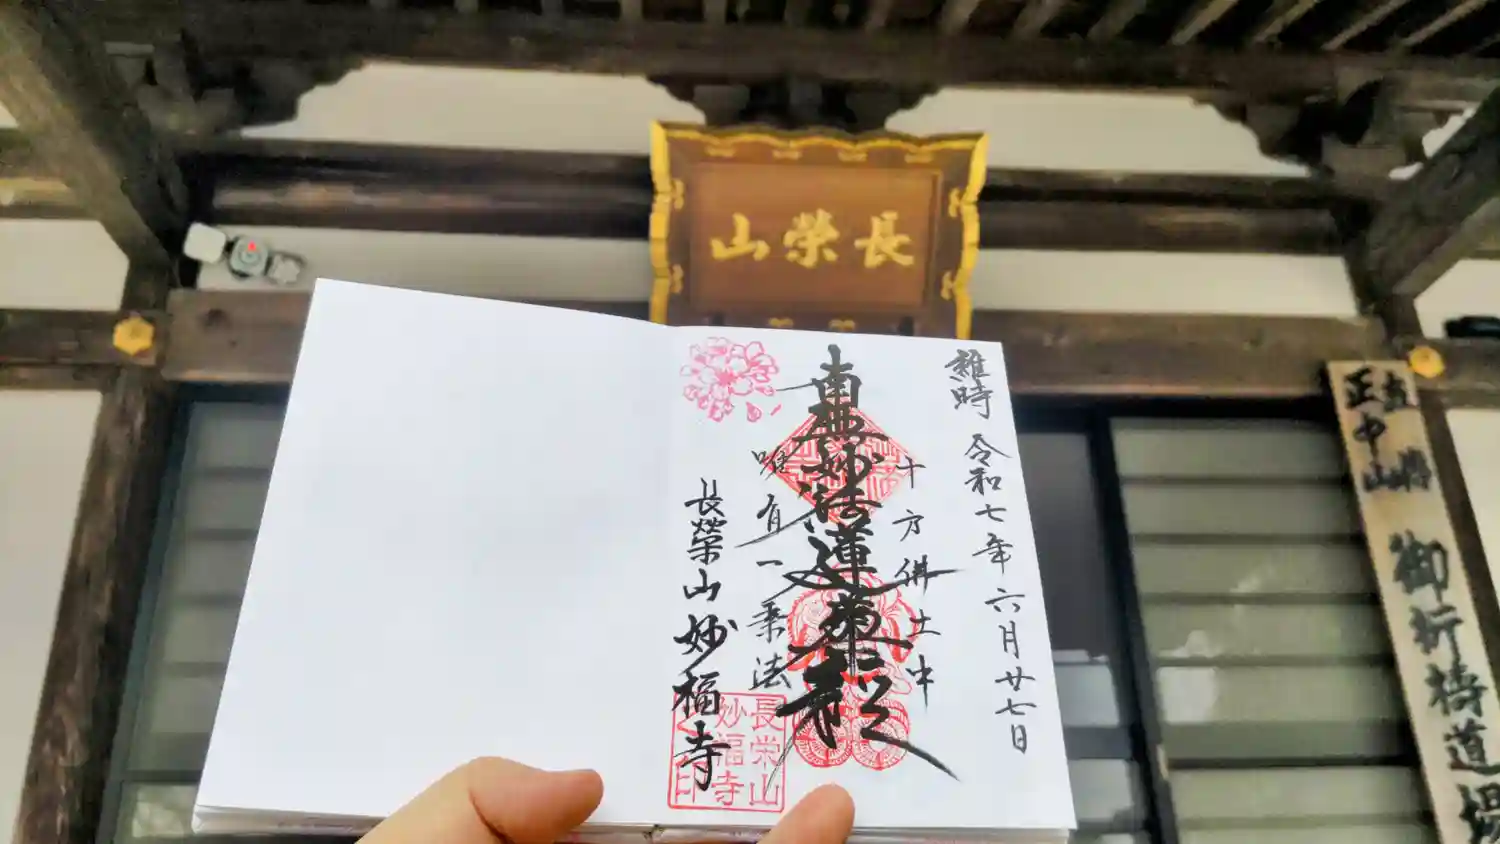 長榮山
維時 令和七年六月廿七日
十方佛土中
南無妙法蓮華経
唯有一乗法
長榮山 妙福寺
長栄山
妙福寺
之印
正中山
御祈祷道場